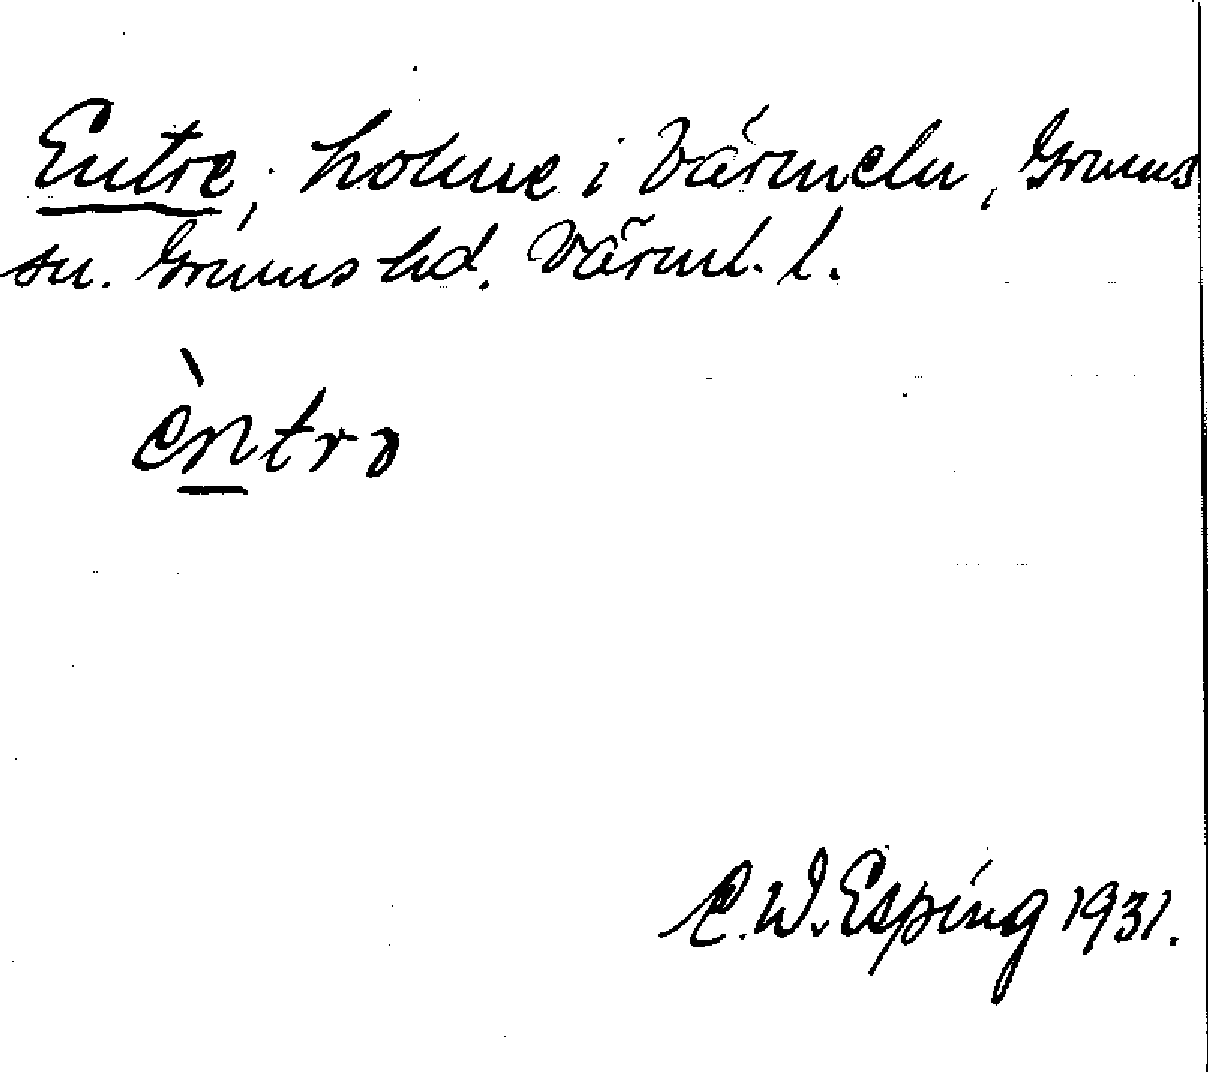 Entre, holme i Värmeln, Grums
sn. Grums hd. Värml. l.
èntrə
E. W. Esping 1931.